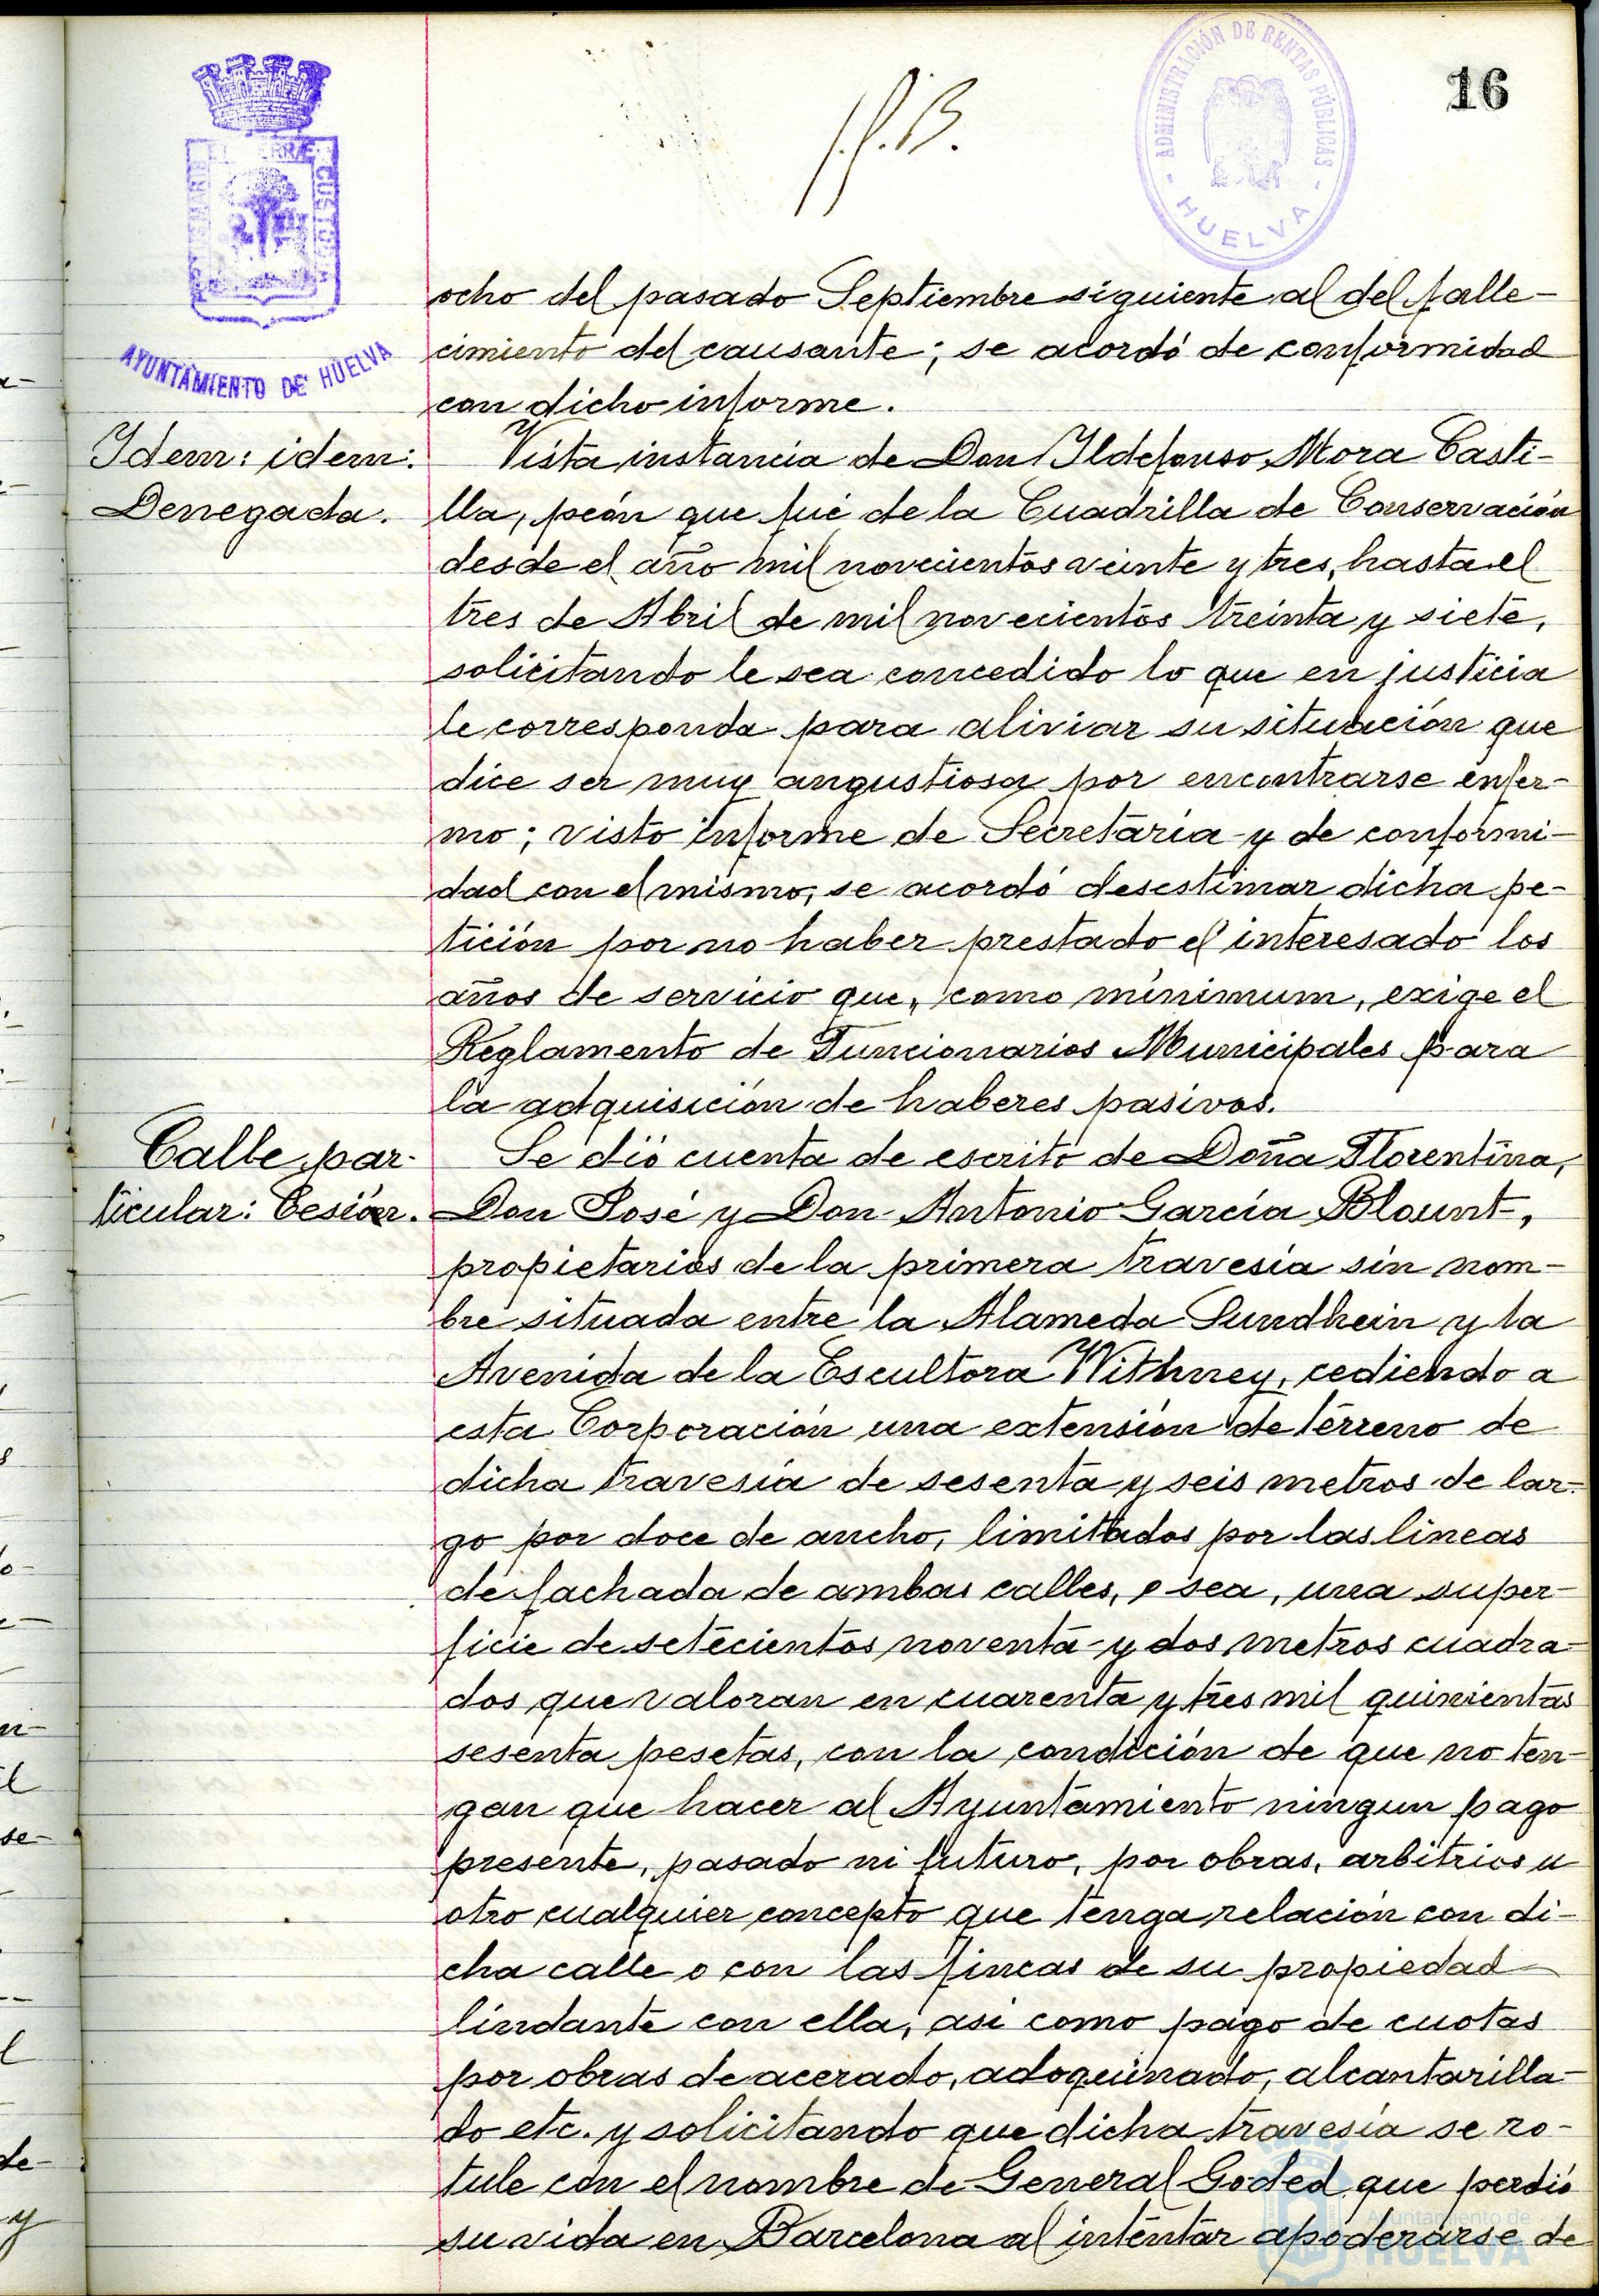 16
ADMINISTRACIÓN DE RENTAS PÚBLICAS
- HUELVA -
CUSTODIA
AYUNTAMIENTO DE HUELVA
ocho del pasado Septiembre siguiente al del falle-
cimiento del causante; se acordó de conformidad
con dicho informe.
Idem: idem:
Denegada.
Vista instancia de Don Ildefonso Mora Casti-
lla, peón que fué de la Cuadrilla de Conservación
desde el año mil novecientos veinte y tres, hasta el
tres de Abril de mil novecientos treinta y siete,
solicitando le sea concedido lo que en justicia
le corresponda para aliviar su situación que
dice ser muy angustiosa por encontrarse enfer-
mo; visto informe de Secretaría y de conformi-
dad con el mismo, se acordó desestimar dicha pe-
tición por no haber prestado el interesado los
años de servicio que, como mínimum, exige el
Reglamento de Funcionarios Municipales para
la adquisición de haberes pasivos.
Calle par-
ticular: Cesión.
Se dió cuenta de escrito de Doña Florentina,
Don José y Don Antonio García Blount,
propietarios de la primera travesía sin nom-
bre situada entre la Alameda Sundhein y la
Avenida de la Escultora Withney, cediendo a
esta Corporación una extensión de terreno de
dicha travesía de sesenta y seis metros de lar-
go por doce de ancho, limitados por las lineas
de fachada de ambas calles, o sea, una super-
ficie de setecientos noventa y dos metros cuadra-
dos que valoran en cuarenta y tres mil quinientas
sesenta pesetas, con la condición de que no ten-
gan que hacer al Ayuntamiento ningun pago
presente, pasado ni futuro, por obras, arbitrios u
otro cualquier concepto que tenga relación con di-
cha calle o con las fincas de su propiedad
lindante con ella, asi como pago de cuotas
por obras de acerado, adoquinado, alcantarilla-
do etc. y solicitando que dicha travesía se ro-
tule con el nombre de General Goded que perdió
su vida en Barcelona al intentar apoderarse de
Ayuntamiento de
HUELVA